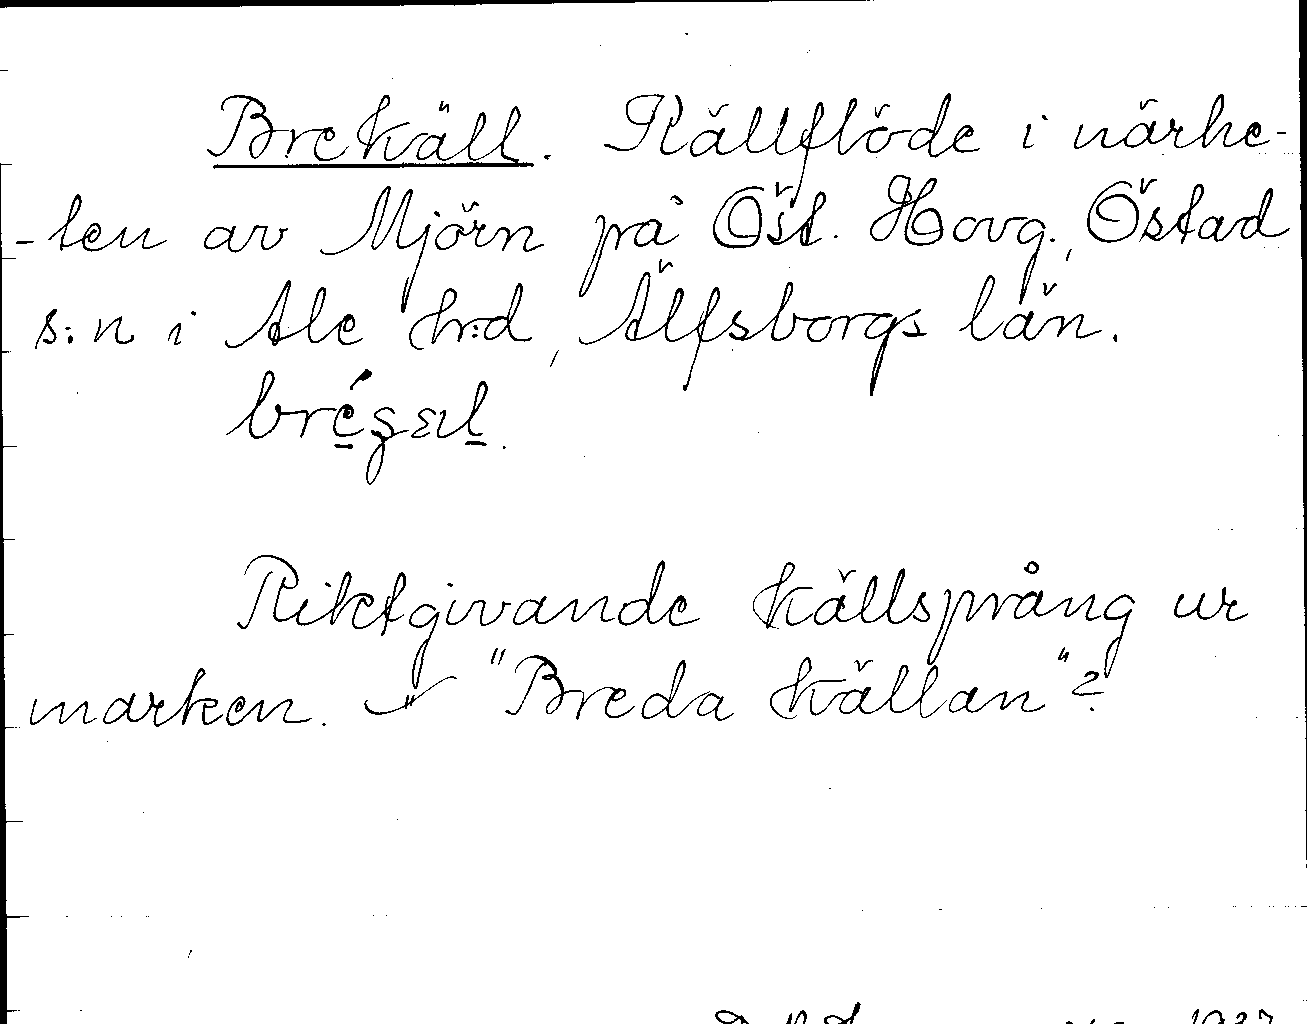 Brekäll. Källflöde i närhe-
-ten av Mjörn på Öst. Hovg., Östad
s:n i Ale h:d, Älfsborgs län.
Riktgivande källsprång ur
marken. "Breda källan"?
1937